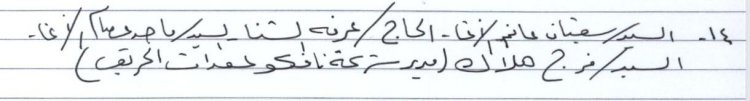 ١٤- السيد/سفيان عاصم الاغا - الحاج/عرفه لشنا - السيد/ماجد عصام الاغا -
السيد/فرج هلال (مدير شركة نافكو لمعدات الحريق)